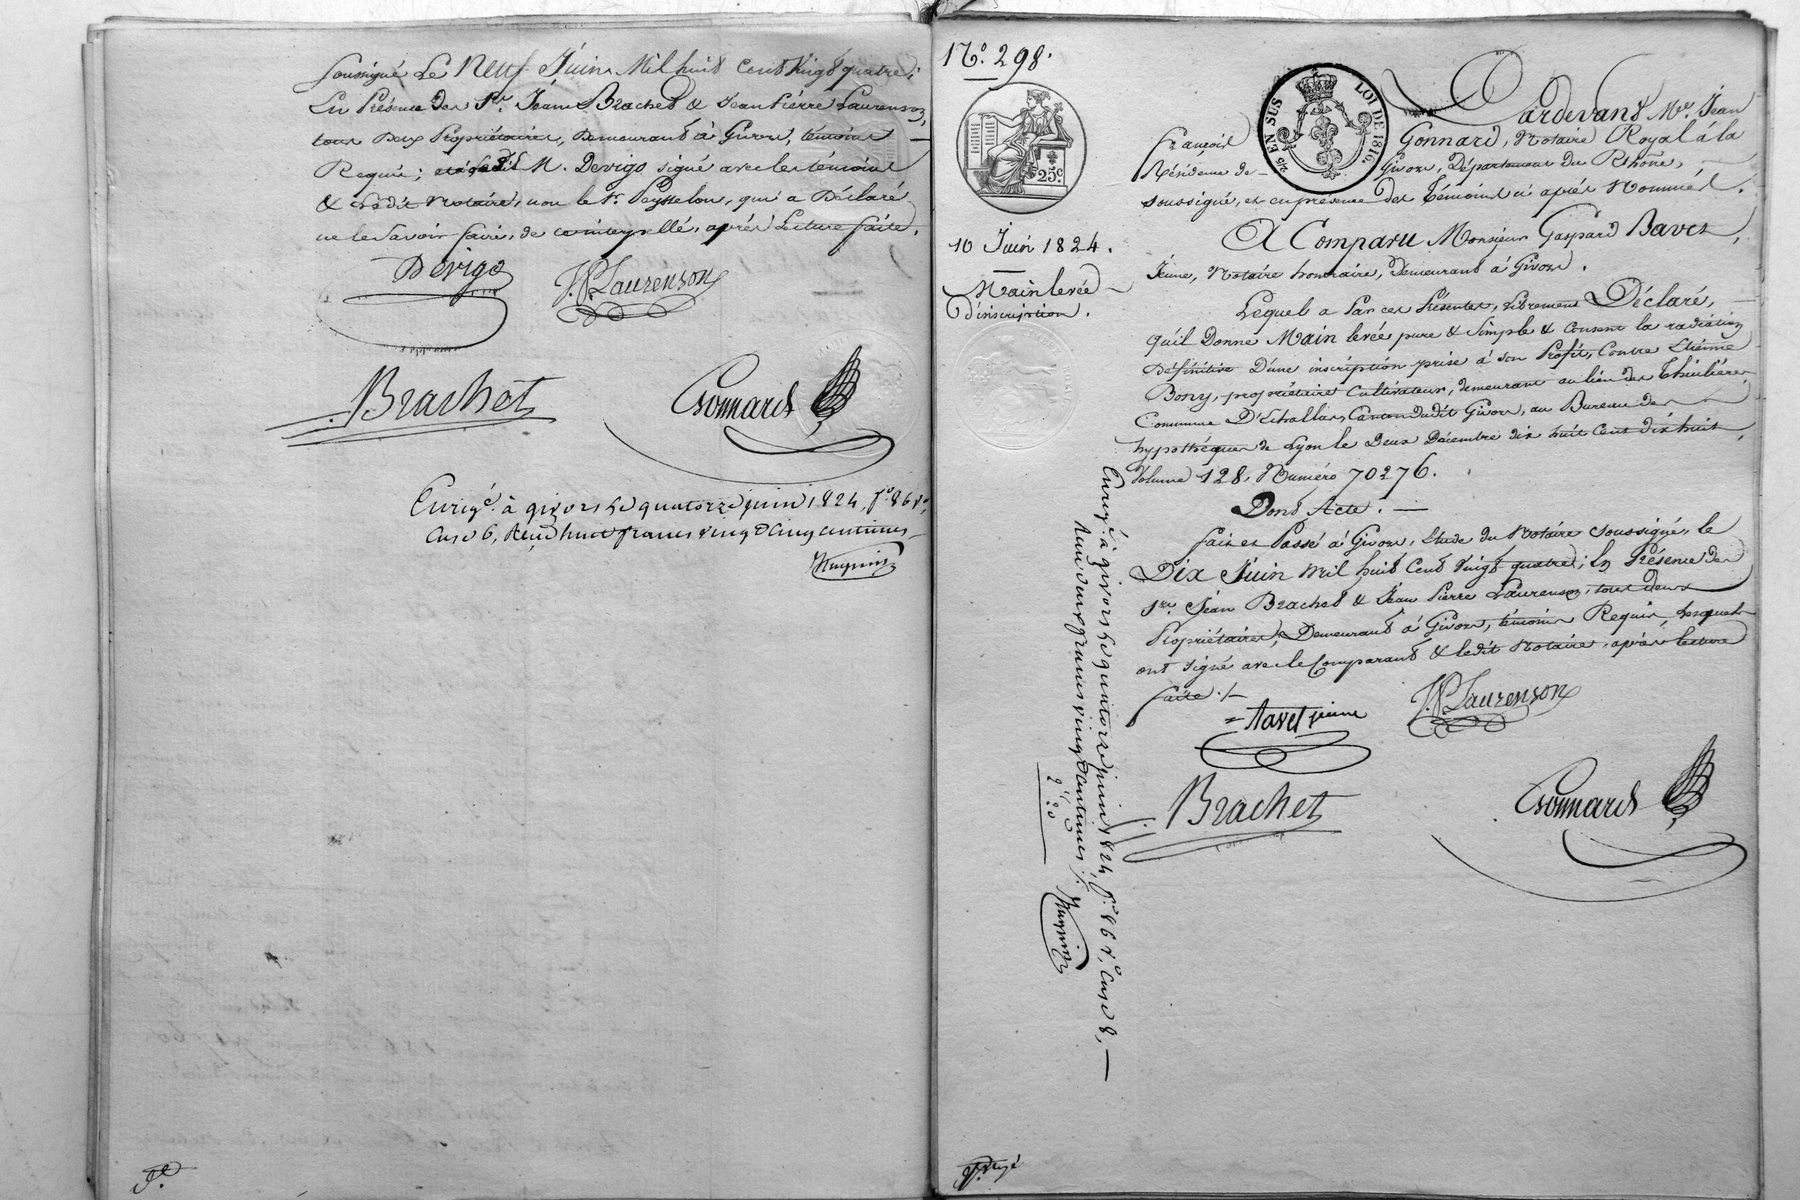 soussigné Le Neuf Juin Mil huit Cent Vingt quatre;
En Présence des Srs. Jean Brachet & Jean Pierre Laurenson,
tous deux Propriétaires, demeurant à Givors, témoins
Requis; M. Devigo signé avec les témoins
& ledit Notaire, non le Sr. Peysselon, qui a Déclaré
ne le Savoir faire, de ce interpellé, après Lecture faite.
Devigo J.P. Laurenson
Brachet Gonnard
Enrgé. à givors le quatorze juin 1824, fo. 86 Vo.
Case 6, Reçu huit francs vingt Cinq centimes
No. 298.
25c
245 EN SUS LOI DE 1816
10 Juin 1824.
Main levée
D'inscription.
Pardevant Me. Jean
François Gonnard, Notaire Royal à la
Résidence de Givors, Département du Rhône,
soussigné, et en présence des témoins ci après Nommés.
A Comparu Monsieur Gaspard Bavet,
Jeune, Notaire honoraire, demeurant à Givors.
Lequel a Par ces Présentes, librement Déclaré,
qu'il Donne Main levée pure & Simple & Consent la radiation
Définitive D'une inscription prise à son Profit, Contre Etienne
Bony, propriétaire Cultivateur, demeurant au lieu des
Commune D'Echallas, Canton dudit Givors, au Bureau des
hypothèques de Lyon le Deux Décembre dix huit Cent dix huit,
Volume 128, Numéro 70276.
Dont Acte.
fait et Passé à Givors, Etude du Notaire soussigné, le
Dix Juin Mil huit Cent Vingt quatre; En Présence des
Srs. Jean Brachet & Jean Pierre Laurenson, tous deux
Propriétaires, Demeurant à Givors, témoins Requis, lesquels
ont signé avec le Comparant & ledit Notaire, après lecture
faite ./.
Bavet jeune J.P. Laurenson
Brachet Gonnard
Enrgé. à givors le quatorze juin 1824, fo. 86 Vo. Case 8,
Reçu deux francs vingt centimes ./.